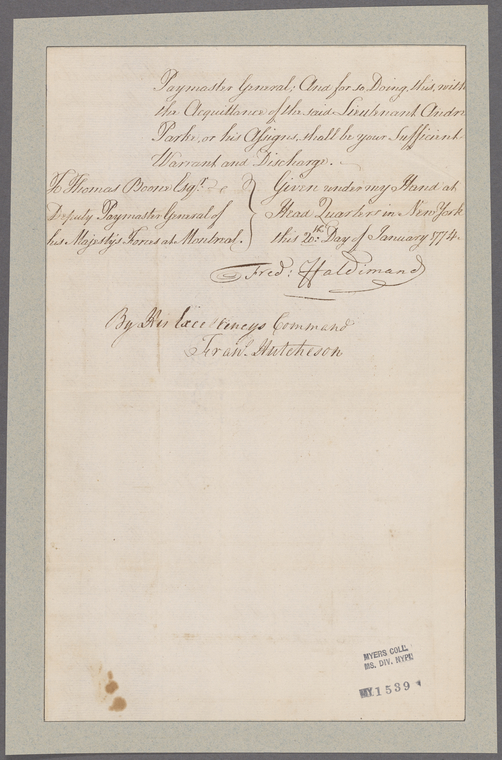 Paymaster General; And for so Doing, this, with
the Acquittance of the said Lieutenant Andre
Parke, or his Assigns, shall be your Sufficient
Warrant and Discharge.
To Thomas Boone Esqr.
Deputy Paymaster General of
his Majesty's Forces at Montreal.
Given under my Hand at
Head Quarters in New York
this 20th. Day of January 1774.
Fred: Haldimand
By His Excellencys Command
Frans. Hutcheson
MYERS COLL.
MS. DIV. NYPL
MY 1539